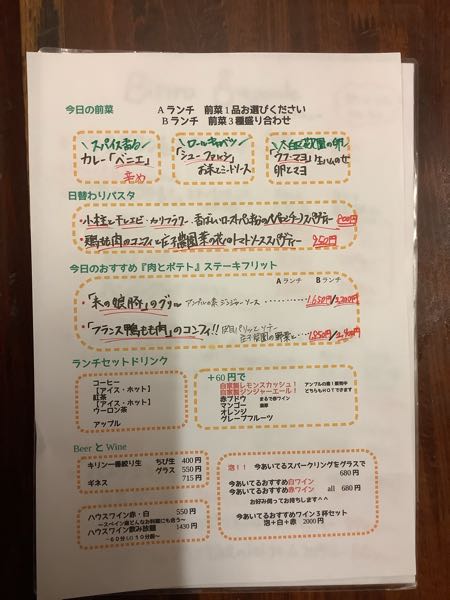 今日の前菜
Aランチ 前菜1品お選びください
Bランチ 前菜3種盛り合わせ
スパイス香る
カレー「ベニエ」
辛め
ロールキャベツ
「シューファルシ」
お米とミートソース
農園の卵
「ウフ・マヨ」生ハムのせ
卵とマヨ
日替わりパスタ
・小柱と干しエビ・カリフラワー 香ばしいローストパン粉のペペロンチーノスパゲティー
・鶏もも肉のコンフィと 農園菜の花のトマトソーススパゲティー 950円
今日のおすすめ『肉とポテト』ステーキフリット
Aランチ Bランチ
・「米の娘豚」のグリル アンプルの素 ジンジャーソース ………… 1,650円/2,200円
・「フランス鴨もも肉」のコンフィ!! 皮目パリッとソテー
農園の野菜と 1,850円/2,400円
ランチセットドリンク
コーヒー
【アイス・ホット】
紅茶
【アイス・ホット】
ウーロン茶
アップル
+60円で
自家製レモンスカッシュ!
自家製ジンジャーエール!
アンプルの素!販売中
どちらもHOTできます
赤ブドウ まるで赤ワイン
マンゴー
オレンジ
グレープフルーツ
Beer と Wine
キリン一番絞り生 ちび生 400円
グラス 550円
ギネス 715円
ハウスワイン赤・白 550円
～スペイン産どんなお料理にも合う～
ハウスワイン飲み放題 1430円
～60分LO10分前～
泡!! 今あいてるスパークリングをグラスで
680円
今あいてるおすすめ白ワイン
今あいてるおすすめ赤ワイン all 680円
お好み伺ってお持ちします^^
今あいてるおすすめワイン3杯セット
泡+白+赤 2000円